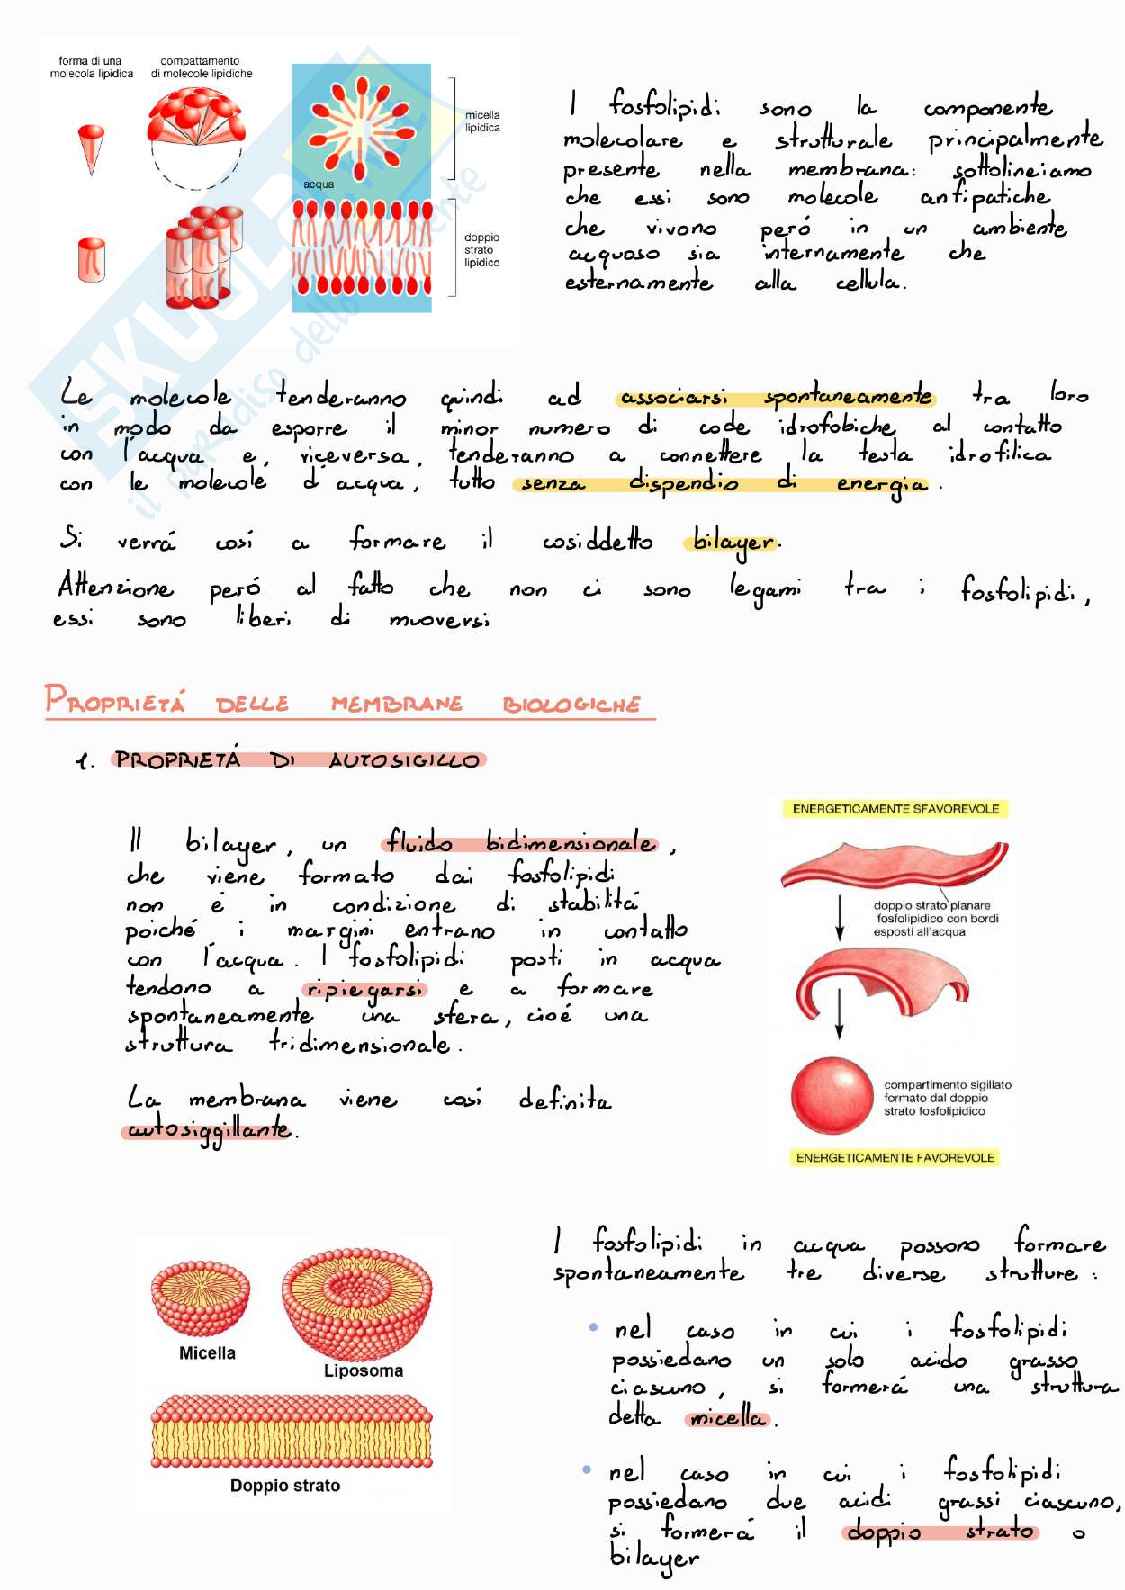 forma di una
molecola lipidica
compattamento
di molecole lipidiche
micella
lipidica
acqua
doppio
strato
lipidico
SKUOLA
il paradiso dello
I fosfolipidi sono la componente
molecolare e strutturale principalmente
presente nella membrana: sottolineiamo
che essi sono molecole anfipatiche
che vivono peró in un ambiente
acquoso sia internamente che
esternamente alla cellula.
Le molecole tenderanno quindi ad associarsi spontaneamente tra loro
in modo da esporre il minor numero di code idrofobiche al contatto
con l'acqua e, viceversa, tenderanno a connettere la testa idrofilica
con le molecole d'acqua, tutto senza dispendio di energia.
Si verrá cosí a formare il cosiddetto bilayer.
Attenzione peró al fatto che non ci sono legami tra i fosfolipidi,
essi sono liberi di muoversi
PROPRIETÁ DELLE MEMBRANE BIOLOGICHE
1. PROPRIETÁ DI AUTOSIGILLO
Il bilayer, un fluido bidimensionale,
che viene formato dai fosfolipidi
non é in condizione di stabilitá
poiché i margini entrano in contatto
con l'acqua. I fosfolipidi posti in acqua
tendono a ripiegarsi e a formare
spontaneamente una sfera, cioé una
struttura tridimensionale.
La membrana viene cosí definita
autosiggillante.
ENERGETICAMENTE SFAVOREVOLE
doppio strato planare
fosfolipidico con bordi
esposti all'acqua
compartimento sigillato
formato dal doppio
strato fosfolipidico
ENERGETICAMENTE FAVOREVOLE
Micella
Liposoma
Doppio strato
I fosfolipidi in acqua possono formare
spontaneamente tre diverse strutture:
• nel caso in cui i fosfolipidi
possiedano un solo acido grasso
ciascuno, si formerá una struttura
detta micella.
• nel caso in cui i fosfolipidi
possiedano due acidi grassi ciascuno,
si formerá il doppio strato o
bilayer